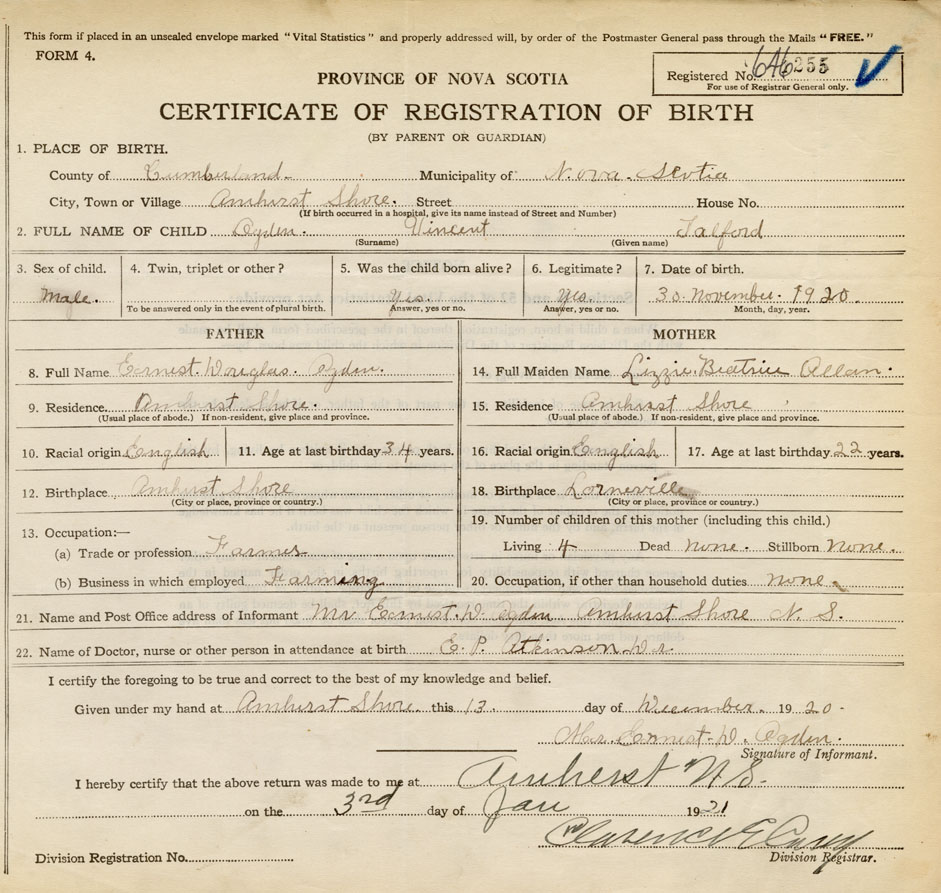 This form if placed in an unsealed envelope marked "Vital Statistics" and properly addressed will, by order of the Postmaster General pass through the Mails "FREE."
FORM 4.
Registered No. 255
For use of Registrar General only.
PROVINCE OF NOVA SCOTIA
CERTIFICATE OF REGISTRATION OF BIRTH
(BY PARENT OR GUARDIAN)
1. PLACE OF BIRTH.
County of Cumberland. Municipality of Nova-Scotia
City, Town or Village Amhirst Shore. Street House No.
(If birth occurred in a hospital, give its name instead of Street and Number)
2. FULL NAME OF CHILD Ogden. Vincent Talford
(Surname) (Given name)
3. Sex of child. 4. Twin, triplet or other? 5. Was the child born alive? 6. Legitimate? 7. Date of birth.
Male. Yes. Yes. 30 November. 1920.
To be answered only in the event of plural birth. Answer, yes or no. Answer, yes or no. Month, day, year.
FATHER MOTHER
8. Full Name Ernest. Douglas. Ogden. 14. Full Maiden Name Lizzie. Beatrice Allan.
9. Residence. Amhirst Shore. 15. Residence Amhirst Shore
(Usual place of abode.) If non-resident, give place and province. (Usual place of abode.) If non-resident, give place and province.
10. Racial origin English 11. Age at last birthday 34 years. 16. Racial origin English 17. Age at last birthday 22 years.
12. Birthplace Amhirst Shore 18. Birthplace Lorneville
(City or place, province or country.) (City or place, province or country.)
13. Occupation:— 19. Number of children of this mother (including this child.)
(a) Trade or profession Farmer Living 4 Dead None. Stillborn None.
(b) Business in which employed Farming 20. Occupation, if other than household duties none.
21. Name and Post Office address of Informant Mr Ernest. D Ogden Amhirst Shore N. S.
22. Name of Doctor, nurse or other person in attendance at birth E. P. Atkinson Dr.
I certify the foregoing to be true and correct to the best of my knowledge and belief.
Given under my hand at Amhirst Shore this 13. day of December. 1920.
Ernest. D. Ogden.
Signature of Informant.
I hereby certify that the above return was made to me at Amherst N.S.
on the 3rd day of Jan 1921
Clarence E Casey
Division Registrar.
Division Registration No.